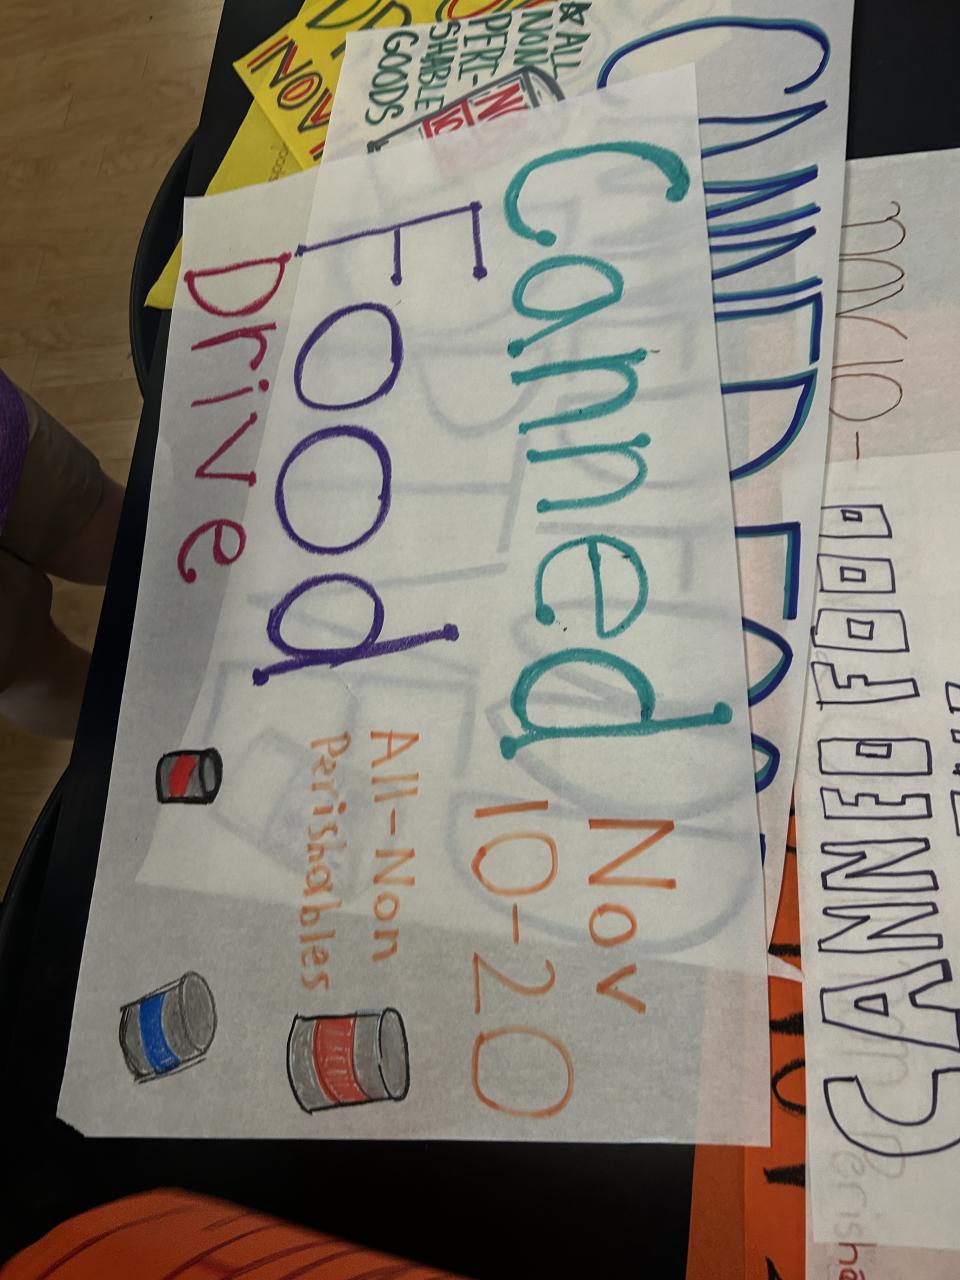 Canned
Food
Drive
Nov
10-20
All-Non
Perishables
☆ALL
NON
PERI-
SHABLE
GOODS
CANNED FOO
CANNED FOOD
NOV 10-